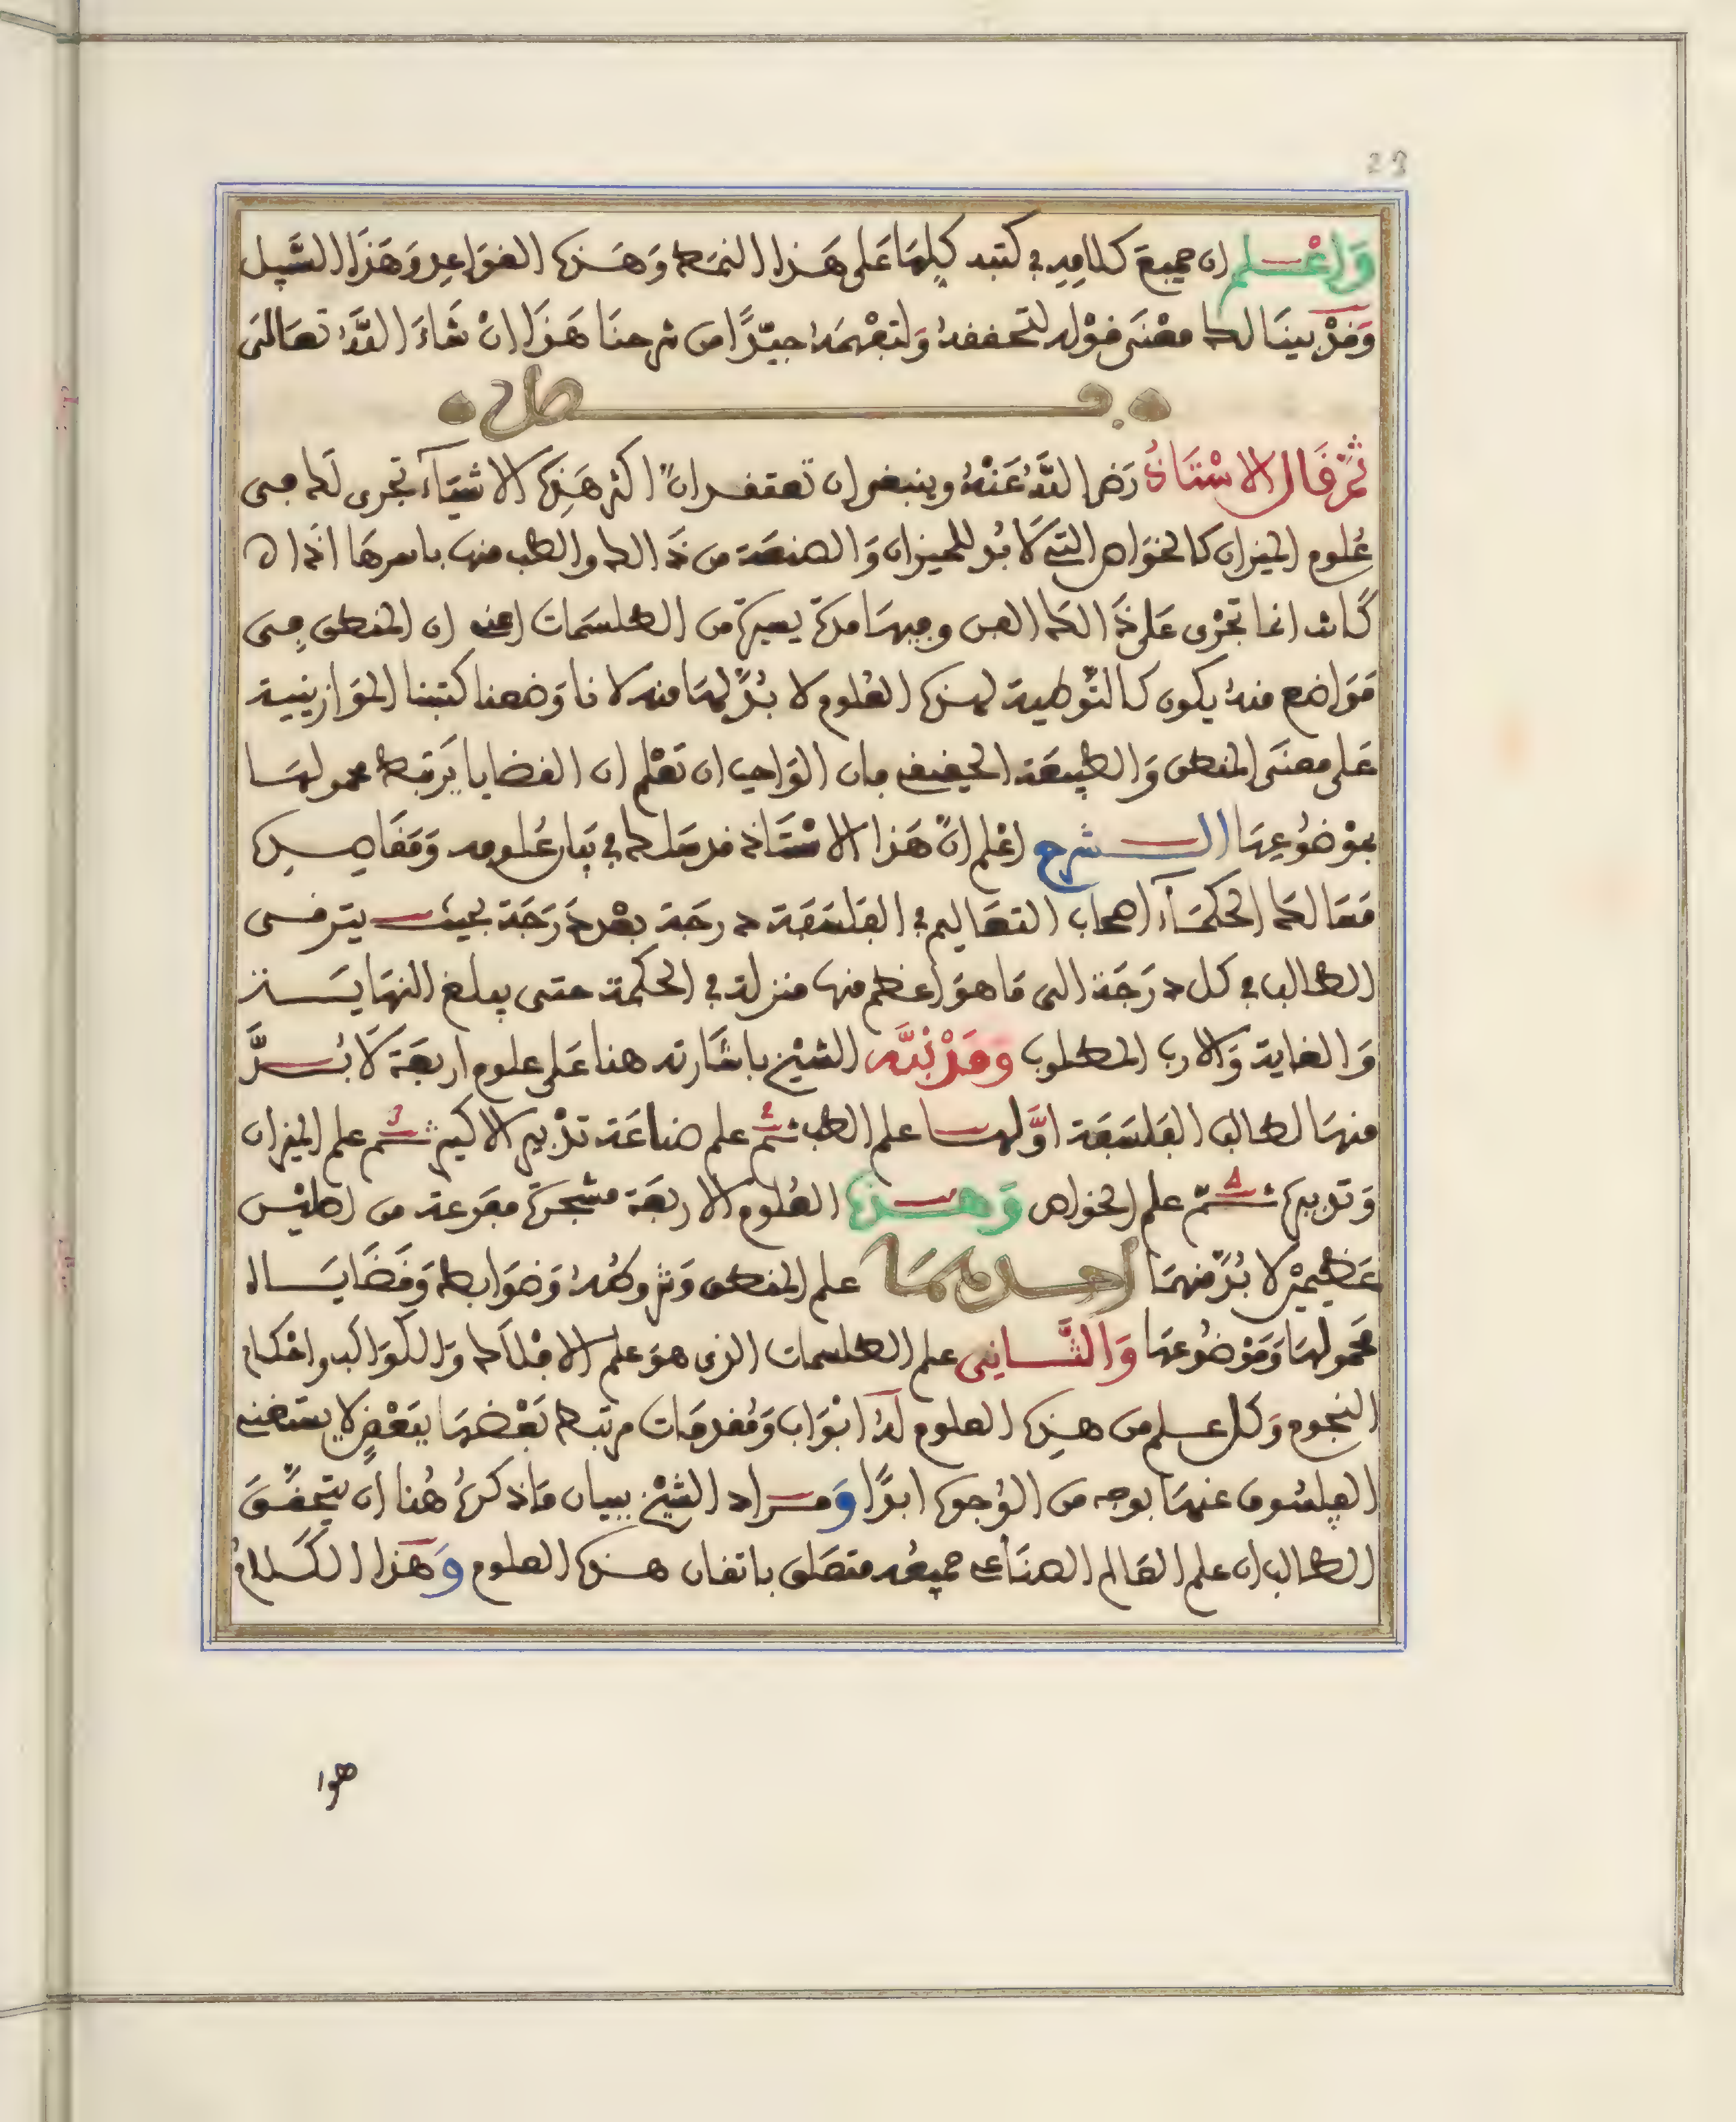 28
وَاعْلم ان جميعَ كلامِهِ في كتبه كلِهَا عَلى هَذا النمَط وَهَذه القوَاعِد وَهَذَا السَّبيل
وَقدْ بينَا لك معْنَى قوْله لتحققهُ وَلتفْهمَهُ جيّدًا من شرحنَا هَذَا انْ شَاءَ اللَّهُ تعَالَى
فصل
ثمّ قَال الاسْتَاذُ رَضي اللَّهُ عَنْهُ وينبغي ان تعتقد انّ اكثر هَذِه الاشيَآء تجرى لك في
عُلوم الميزان كالخوَاص التي لَا بُد للميزان وَالصنعَة من ذَالك والطب منها باسرهَا اذا
كَانت انما تجْرى عَلى ذَالك الفن وفيهَا مدة يسيرة من الطلسَمات اعني ان المنطق في
مَوَاضع منهُ يكون كالتَّوطية لهذه العُلوم لا بُدَّ لهَا منه لانا وَضعنا كتبنا الموَازينية
عَلى معنَى المنطق وَالطبيعَة الحقيقية فان الوَاجب ان تعْلم ان القضايا يَرتبط محمولهَا
بموْضُوعِهَا الشرح اعْلم انَّ هَذا الاسْتَاذ قد سَلك في بيَان عُلومه وَمَقَاصِده
مَسَالك الحكمَآء اصحاب التعَاليم في الفلسَفَة درجَة بعْد دَرَجَة بحيث يترقى
الطالب في كل درَجَة الى مَا هوَ اعظم منها منزلة في الحكمة حتى يبلغ النهايَة
وَالغاية وَالارب المطلوب وقَدْ نبَّه الشيْخ باشَارته هنا عَلى علوم اربعَة لَا بُدَّ
منهَا لطالب الفلسَفَة اوَّلهَا علم الطب ثم علم صناعَة تدْبير الاكسير ثم علم الميزان
وَتدبيره ثمّ علم الخواص وَهذه العُلوم الاربعَة مشجرة مفرعة من اصليْن
عَظيميْن لا بُدّ منهمَا احدهمَا علم المنطق وَشروطُهُ وَضوَابطه وَقَضَايَاه
محمولهَا وَمَوْضُوعهَا وَالثَّاني علم الطلسمات الذى هوَ علم الافْلَاك وَالكَوَاكب واحْكام
النجوم وَكل علم من هَذِه العلوم لهُ ابْوَاب وَمُقدمَات مرتبطَة بَعْضهَا ببَعْضٍ لا يستغنى
الفيلسُوف عنهَا بوجه من الوُجوه ابدًا وَمراد الشيْخ ببيان مَا ذكرهُ هُنا ان يتحقَّقَ
الطالب ان علم العَالم الصنَاعي جميعُه متصَل باتقان هذه العلوم وَهَذا الكَلامُ
هوا